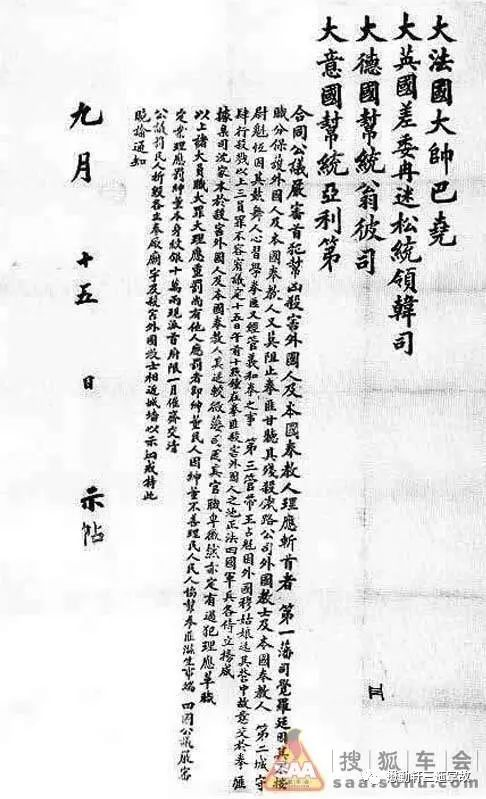 大法國大帥巴堯
大英國差委冉迷松統領韓司
大德國幫統翁彼司
大意國幫統亞利第
合同公議嚴審首犯幫凶殺害外國人及本國奉教人理應斬首者 第一藩司覺羅廷因其不按
職分保護外國人及本國奉教人又其阻止拳匪甘聽其殘殺鐵路公司外國教士及本國奉教人 第二城守
尉魁恆因其鼓舞人心習學拳匪又經管義和拳之事 第三營帶王占魁因外國穆姑娘送其營中故意交於拳匪
肆行殺殘以上三員罪不容宥議定十五日午首十點鐘在拳匪殺害外國人之地正法四國軍兵各侍立務成
據臬司沈家本於殺害外國人及本國奉教人其迷較微藩司因其官職卑微然亦定有過犯理應革職
以上諸大員職大罪大理應重罰尚有他人應罰者即紳董民人因紳董不善理民人民人協幫拳匪滋生事端 四國公議嚴審
定案理應罰紳董本身紋銀十萬兩現派首府限一月催齊交清
公議罰民人折毀各出拳廠廟宇及殺害外國教士相近城墻以示炯戒特此
曉諭通知
九月 十五 日 示帖
SAA 搜狐车会
saa.sohu.com